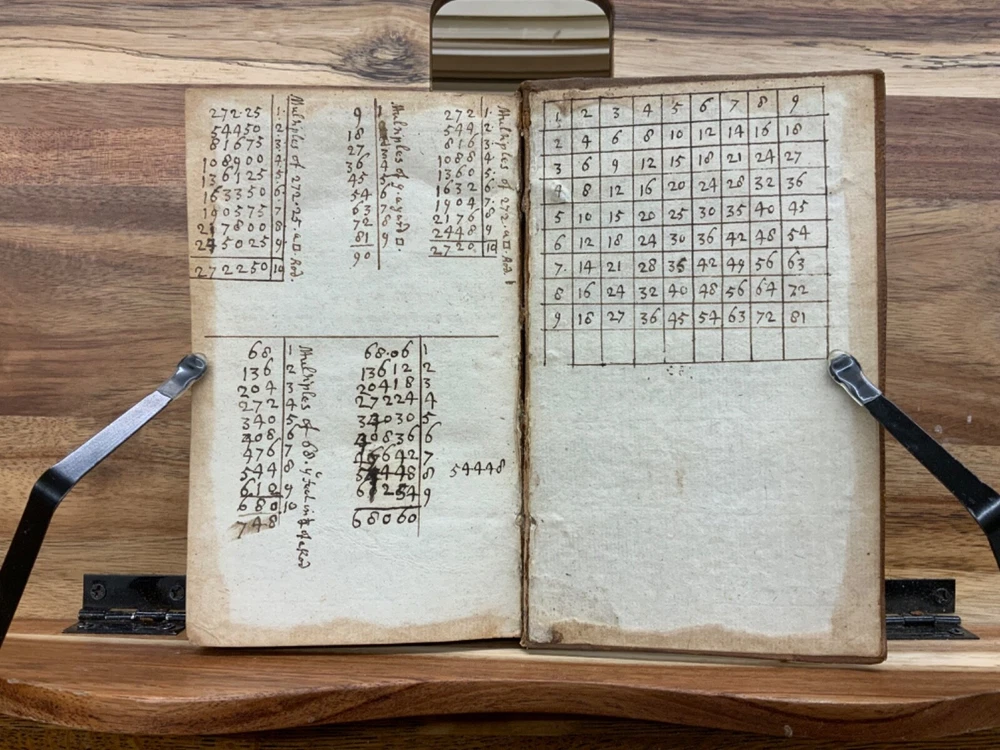 272.25 1.
54450 2.
81675 3.
108900 4.
136125 5.
163350 6.
190575 7
217800 8
245025 9
272250 10
Multiples of 272.25. a □. Rod.
9 1
18
27 3
36 4
45 5
54 6
63 7
72 8
81 9
90
Multiples of 9. a yard □.
272 1.
544 2.
816 3.
1088 4.
1360 5.
1632 6.
1904 7.
2176 8
2448 9.
2720. 10
Multiples of 272. a □. Rod
68 1
136 2
204 3
272 4
340 5
408 6
476 7
544 8
610 9
680 10
748
Multiples of 68. yᵉ feet in ¼ of a Rod
68.06 1
13612 2
20418 3
27224 4
34030 5
40836 6
47642 7
54448 8 54448
61254 9
68060
1 2 3 4 5 6 7 8 9
2 4 6 8 10 12 14 16 18
3 6 9 12 15 18 21 24 27
4 8 12 16 20 24 28 32 36
5 10 15 20 25 30 35 40 45
6 12 18 24 30 36 42 48 54
7. 14 21 28 35 42 49 56 63
8 16 24 32 40 48 56 64 72
9 18 27 36 45 54 63 72 81